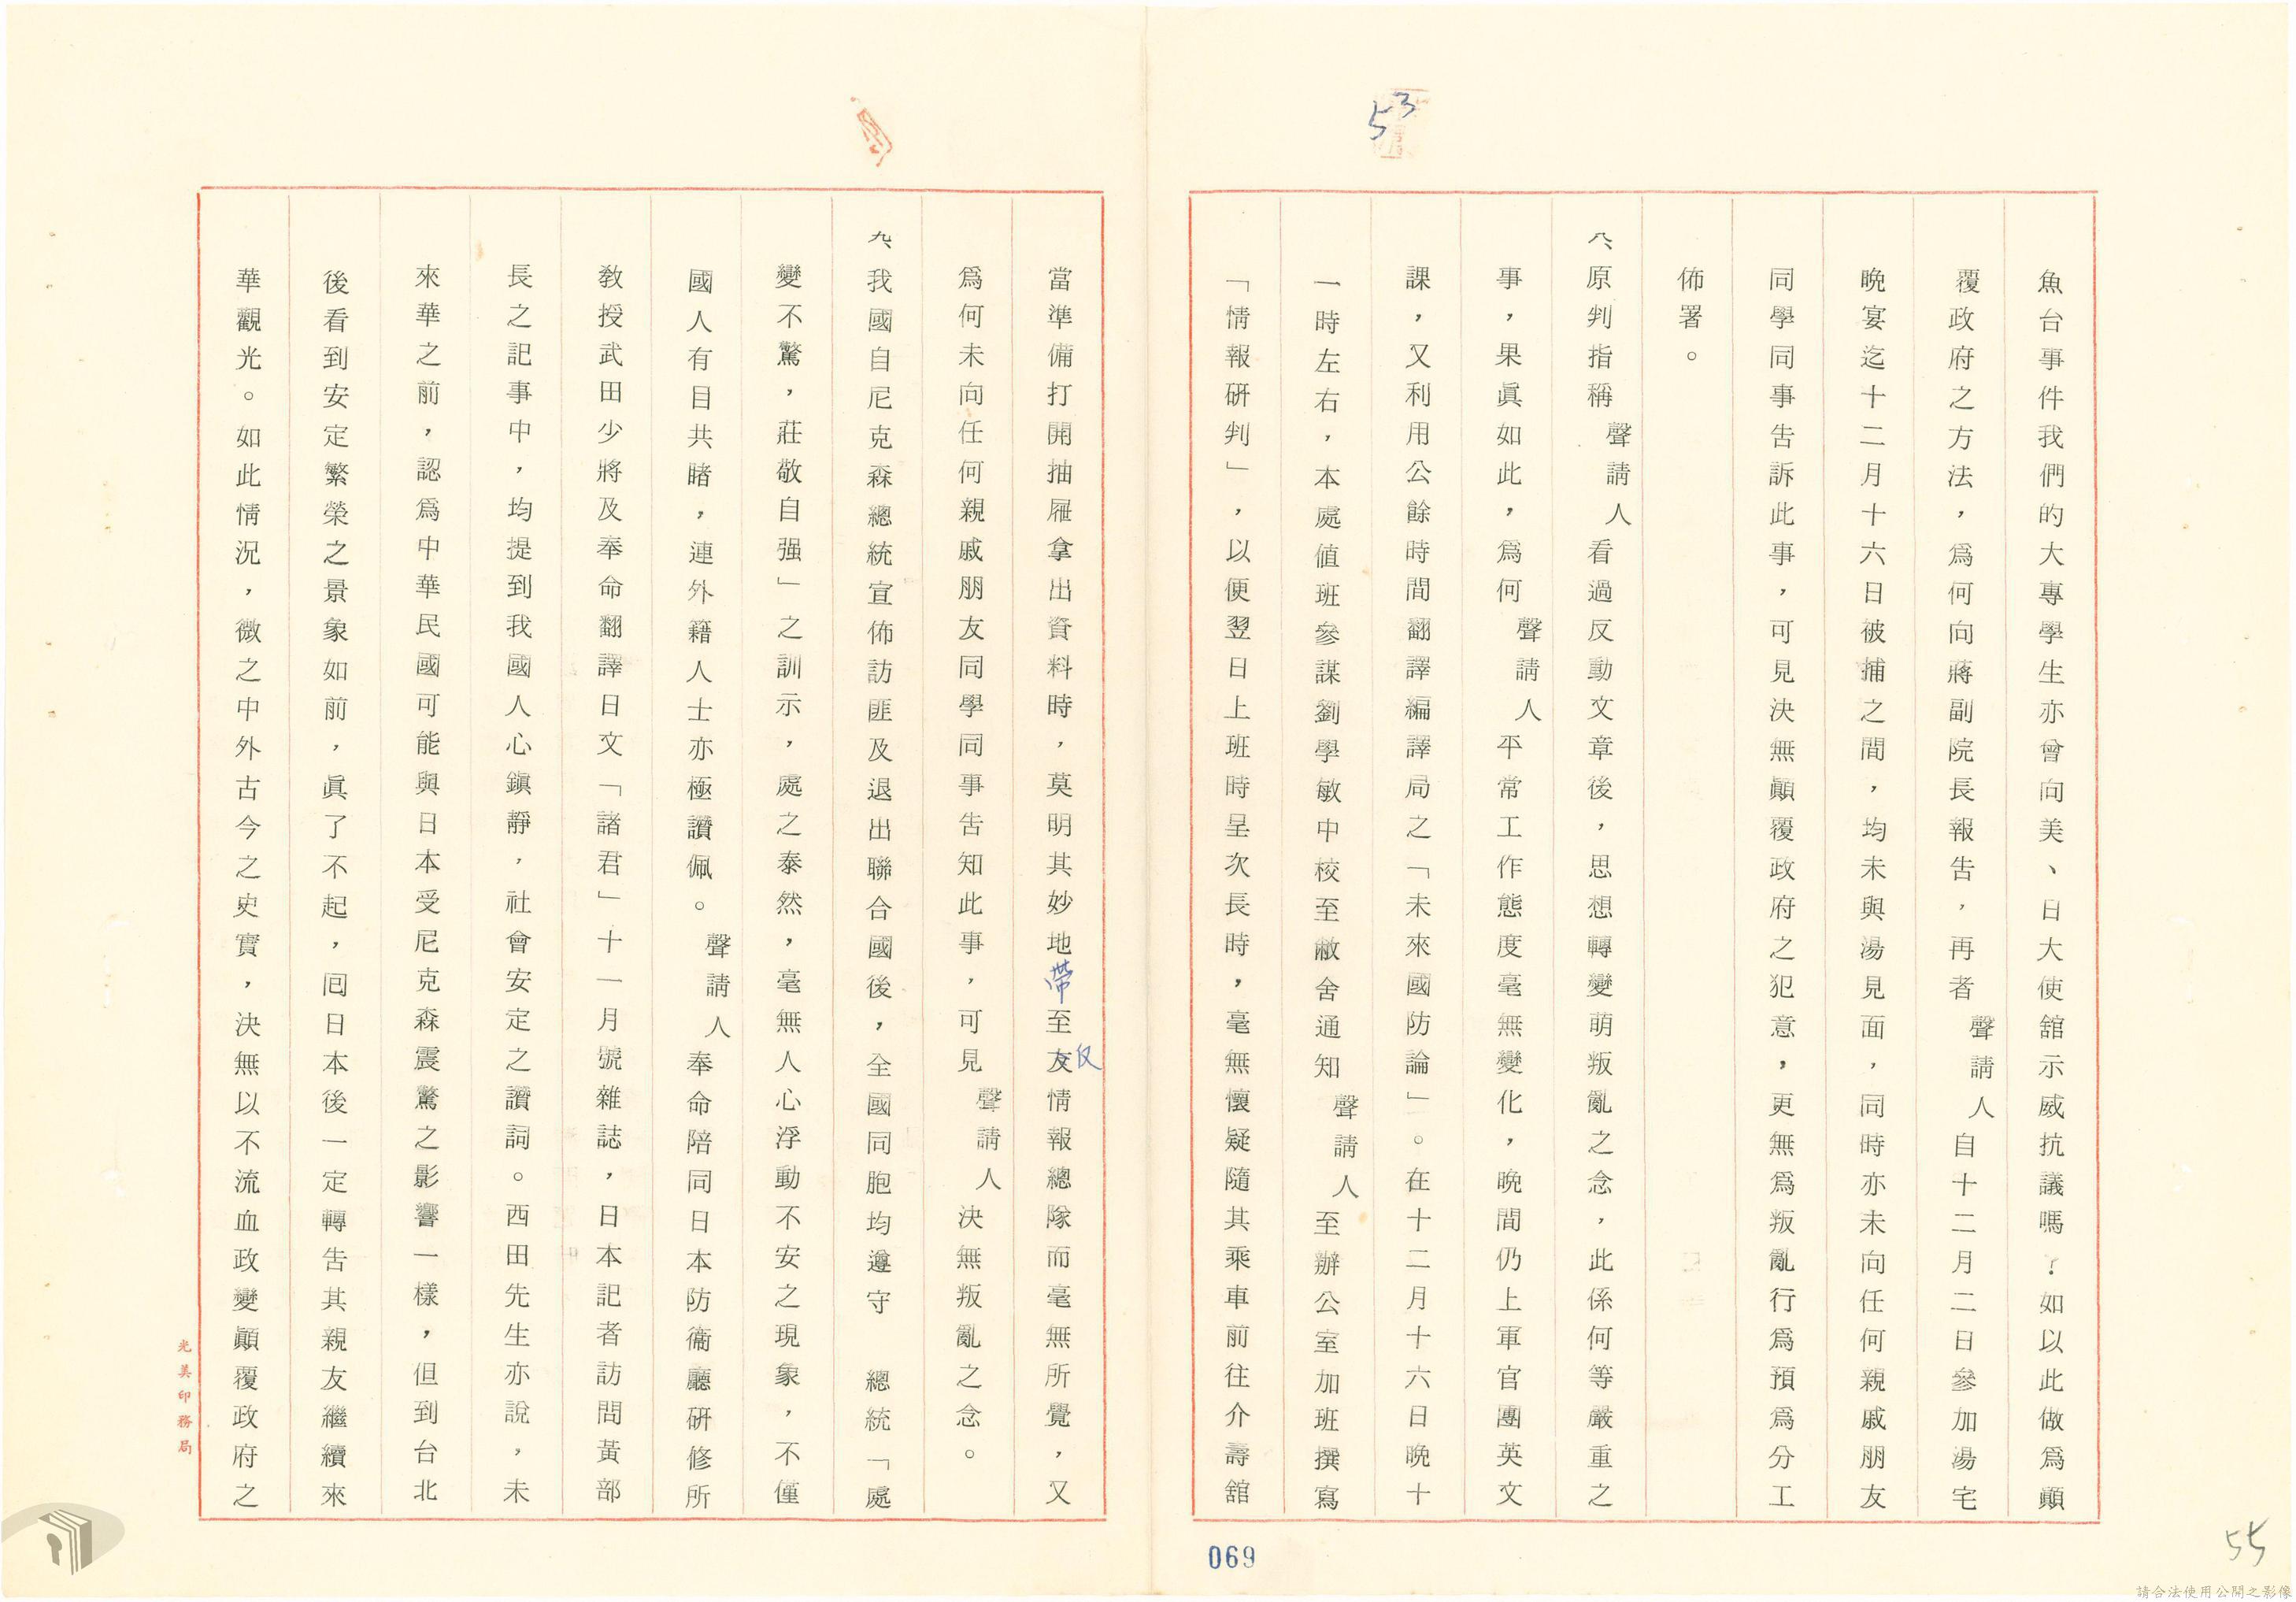 53
魚台事件我們的大專學生亦曾向美、日大使舘示威抗議嗎?如以此做為顛
覆政府之方法,為何向蔣副院長報告,再者聲請人自十二月二日參加湯宅
晚宴迄十二月十六日被捕之間,均未與湯見面,同時亦未向任何親戚朋友
同學同事告訴此事,可見決無顛覆政府之犯意,更無為叛亂行為預為分工
佈署。
八、原判指稱聲請人看過反動文章後,思想轉變萌叛亂之念,此係何等嚴重之
事,果眞如此,為何聲請人平常工作態度毫無變化,晚間仍上軍官團英文
課,又利用公餘時間翻譯編譯局之「未來國防論」。在十二月十六日晚十
一時左右,本處值班參謀劉學敏中校至敝舍通知聲請人至辦公室加班撰寫
「情報研判」,以便翌日上班時呈次長時,毫無懷疑隨其乘車前往介壽舘
當準備打開抽屜拿出資料時,莫明其妙地帶至友反情報總隊而毫無所覺,又
為何未向任何親戚朋友同學同事告知此事,可見聲請人決無叛亂之念。
九、我國自尼克森總統宣佈訪匪及退出聯合國後,全國同胞均遵守 總統「處
變不驚,莊敬自强」之訓示,處之泰然,毫無人心浮動不安之現象,不僅
國人有目共睹,連外籍人士亦極讚佩。聲請人奉命陪同日本防衞廳研修所
敎授武田少將及奉命翻譯日文「諸君」十一月號雜誌,日本記者訪問黃部
長之記事中,均提到我國人心鎭靜,社會安定之讚詞。西田先生亦說,未
來華之前,認為中華民國可能與日本受尼克森震驚之影響一樣,但到台北
後看到安定繁榮之景象如前,眞了不起,囘日本後一定轉告其親友繼續來
華觀光。如此情況,徵之中外古今之史實,決無以不流血政變顛覆政府之
光美印務局
069
55
請合法使用公開之影像